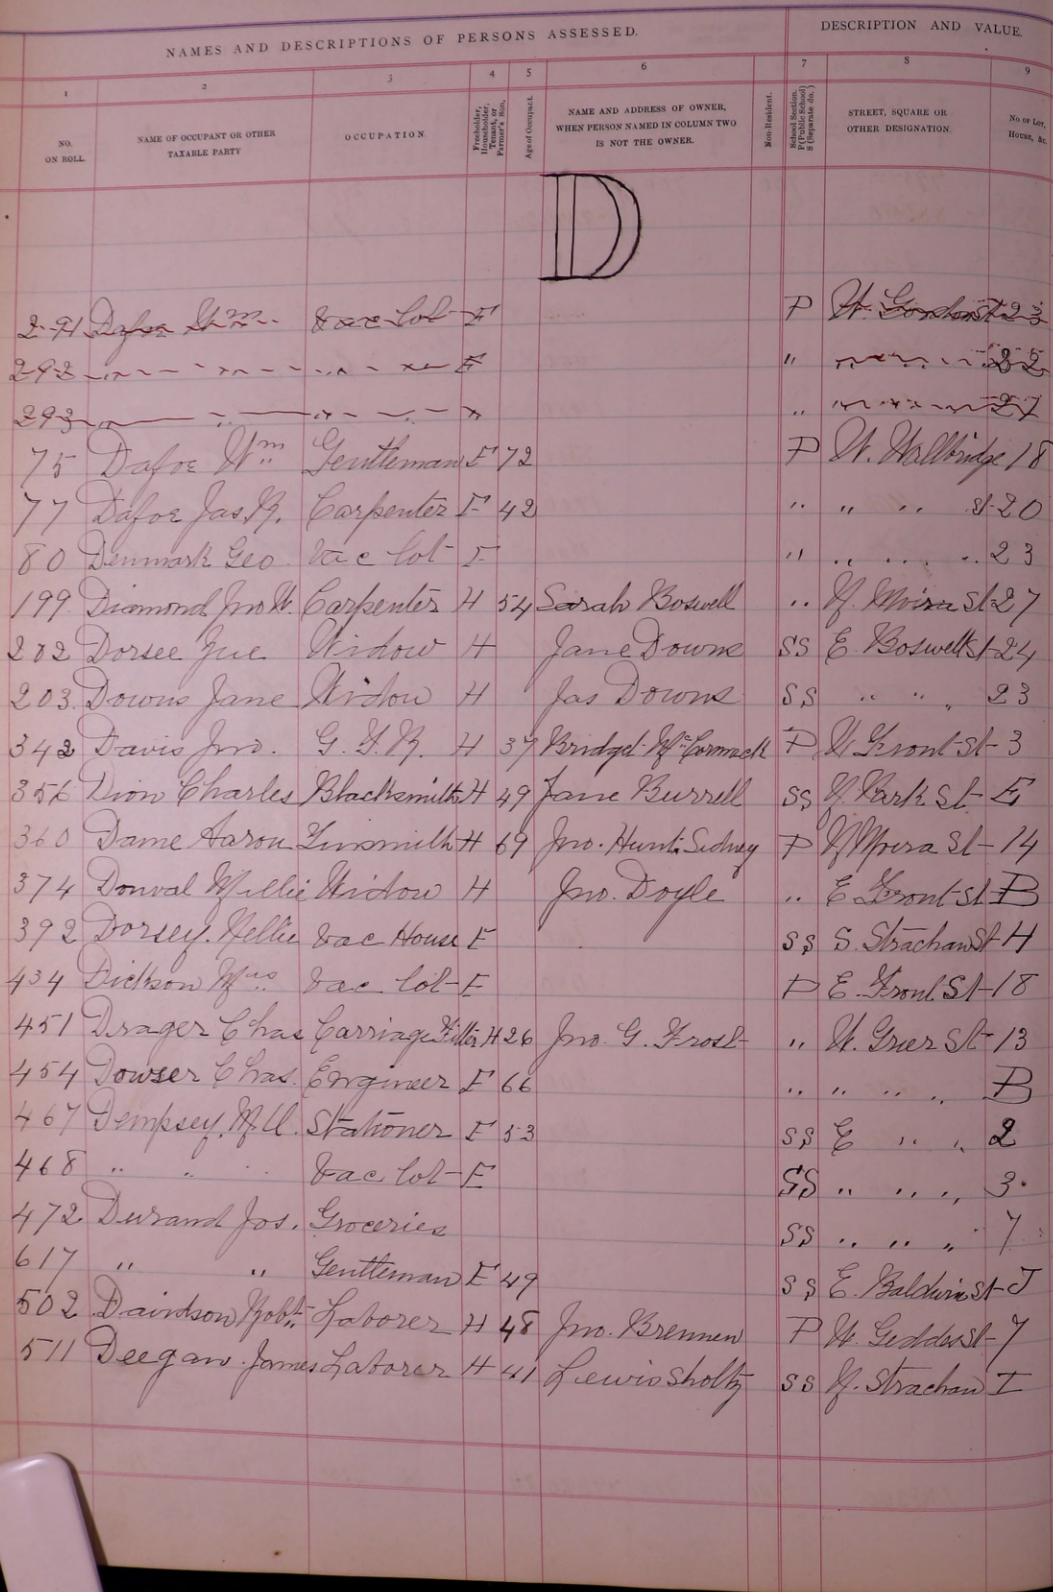 NAMES AND DESCRIPTIONS OF PERSONS ASSESSED. DESCRIPTION AND VALUE.
1 2 3 4 5 6 7 8 9
NO. ON ROLL. NAME OF OCCUPANT OR OTHER TAXABLE PARTY OCCUPATION Freeholder, Householder, Tenant, or Farmer's Son. Age of Occupant. NAME AND ADDRESS OF OWNER, WHEN PERSON NAMED IN COLUMN TWO IS NOT THE OWNER. Non-Resident. School Section. P (Public School) S (Separate do.) STREET, SQUARE OR OTHER DESIGNATION. No of Lot, House, &c.
D
291 Dafoe Wm Vac Lot F P W. Gordon St 23
292 " " " F " " " 22
293 " " " " " " " 21
75 Dafoe Wm Gentleman F 72 P W. Wallbridge 18
77 Dafoe Jas. R. Carpenter F 42 " " " St 20
80 Denmark Geo Vac Lot F " " " " 23
199 Diamond Jno W. Carpenter H 54 Sarah Boswell " N. Moira St 27
202 Dorsee Widow H Jane Downs SS E. Boswell St 24
203 Downs Jane Widow H Jas Downs SS " " " 23
342 Davis Jno. G. T. R. H 37 Bridget McCormack P W Front St 3
356 Dion Charles Blacksmith H 49 Jane Burrell SS N Park St E
360 Dame Aaron Tinsmith H 69 Jno. Hunt. Sidney P N Moira St 14
374 Donval Millie Widow H Jno. Doyle " E Front St B
392 Dorsey. Nellie Vac House F SS S. Strachan St H
434 Dickson Mrs Vac Lot F P E. Front St 18
451 Drager Chas Carriage Fitter H 26 Jno. G. Frost " W. Grier St 13
454 Dowser Chas. Engineer F 66 " " " " B
467 Dempsey, Stationer F 53 SS E " " 2
468 " " " Vac Lot F SS " " " 3
472 Durand Jos. Groceries SS " " " 7
617 " " Gentleman F 49 SS E. Baldwin St J
502 Davidson Robt Laborer H 48 Jno. Brennen P W. Geddes St 7
511 Deegan James Laborer H 41 Lewis Sholtz SS N. Strachan I